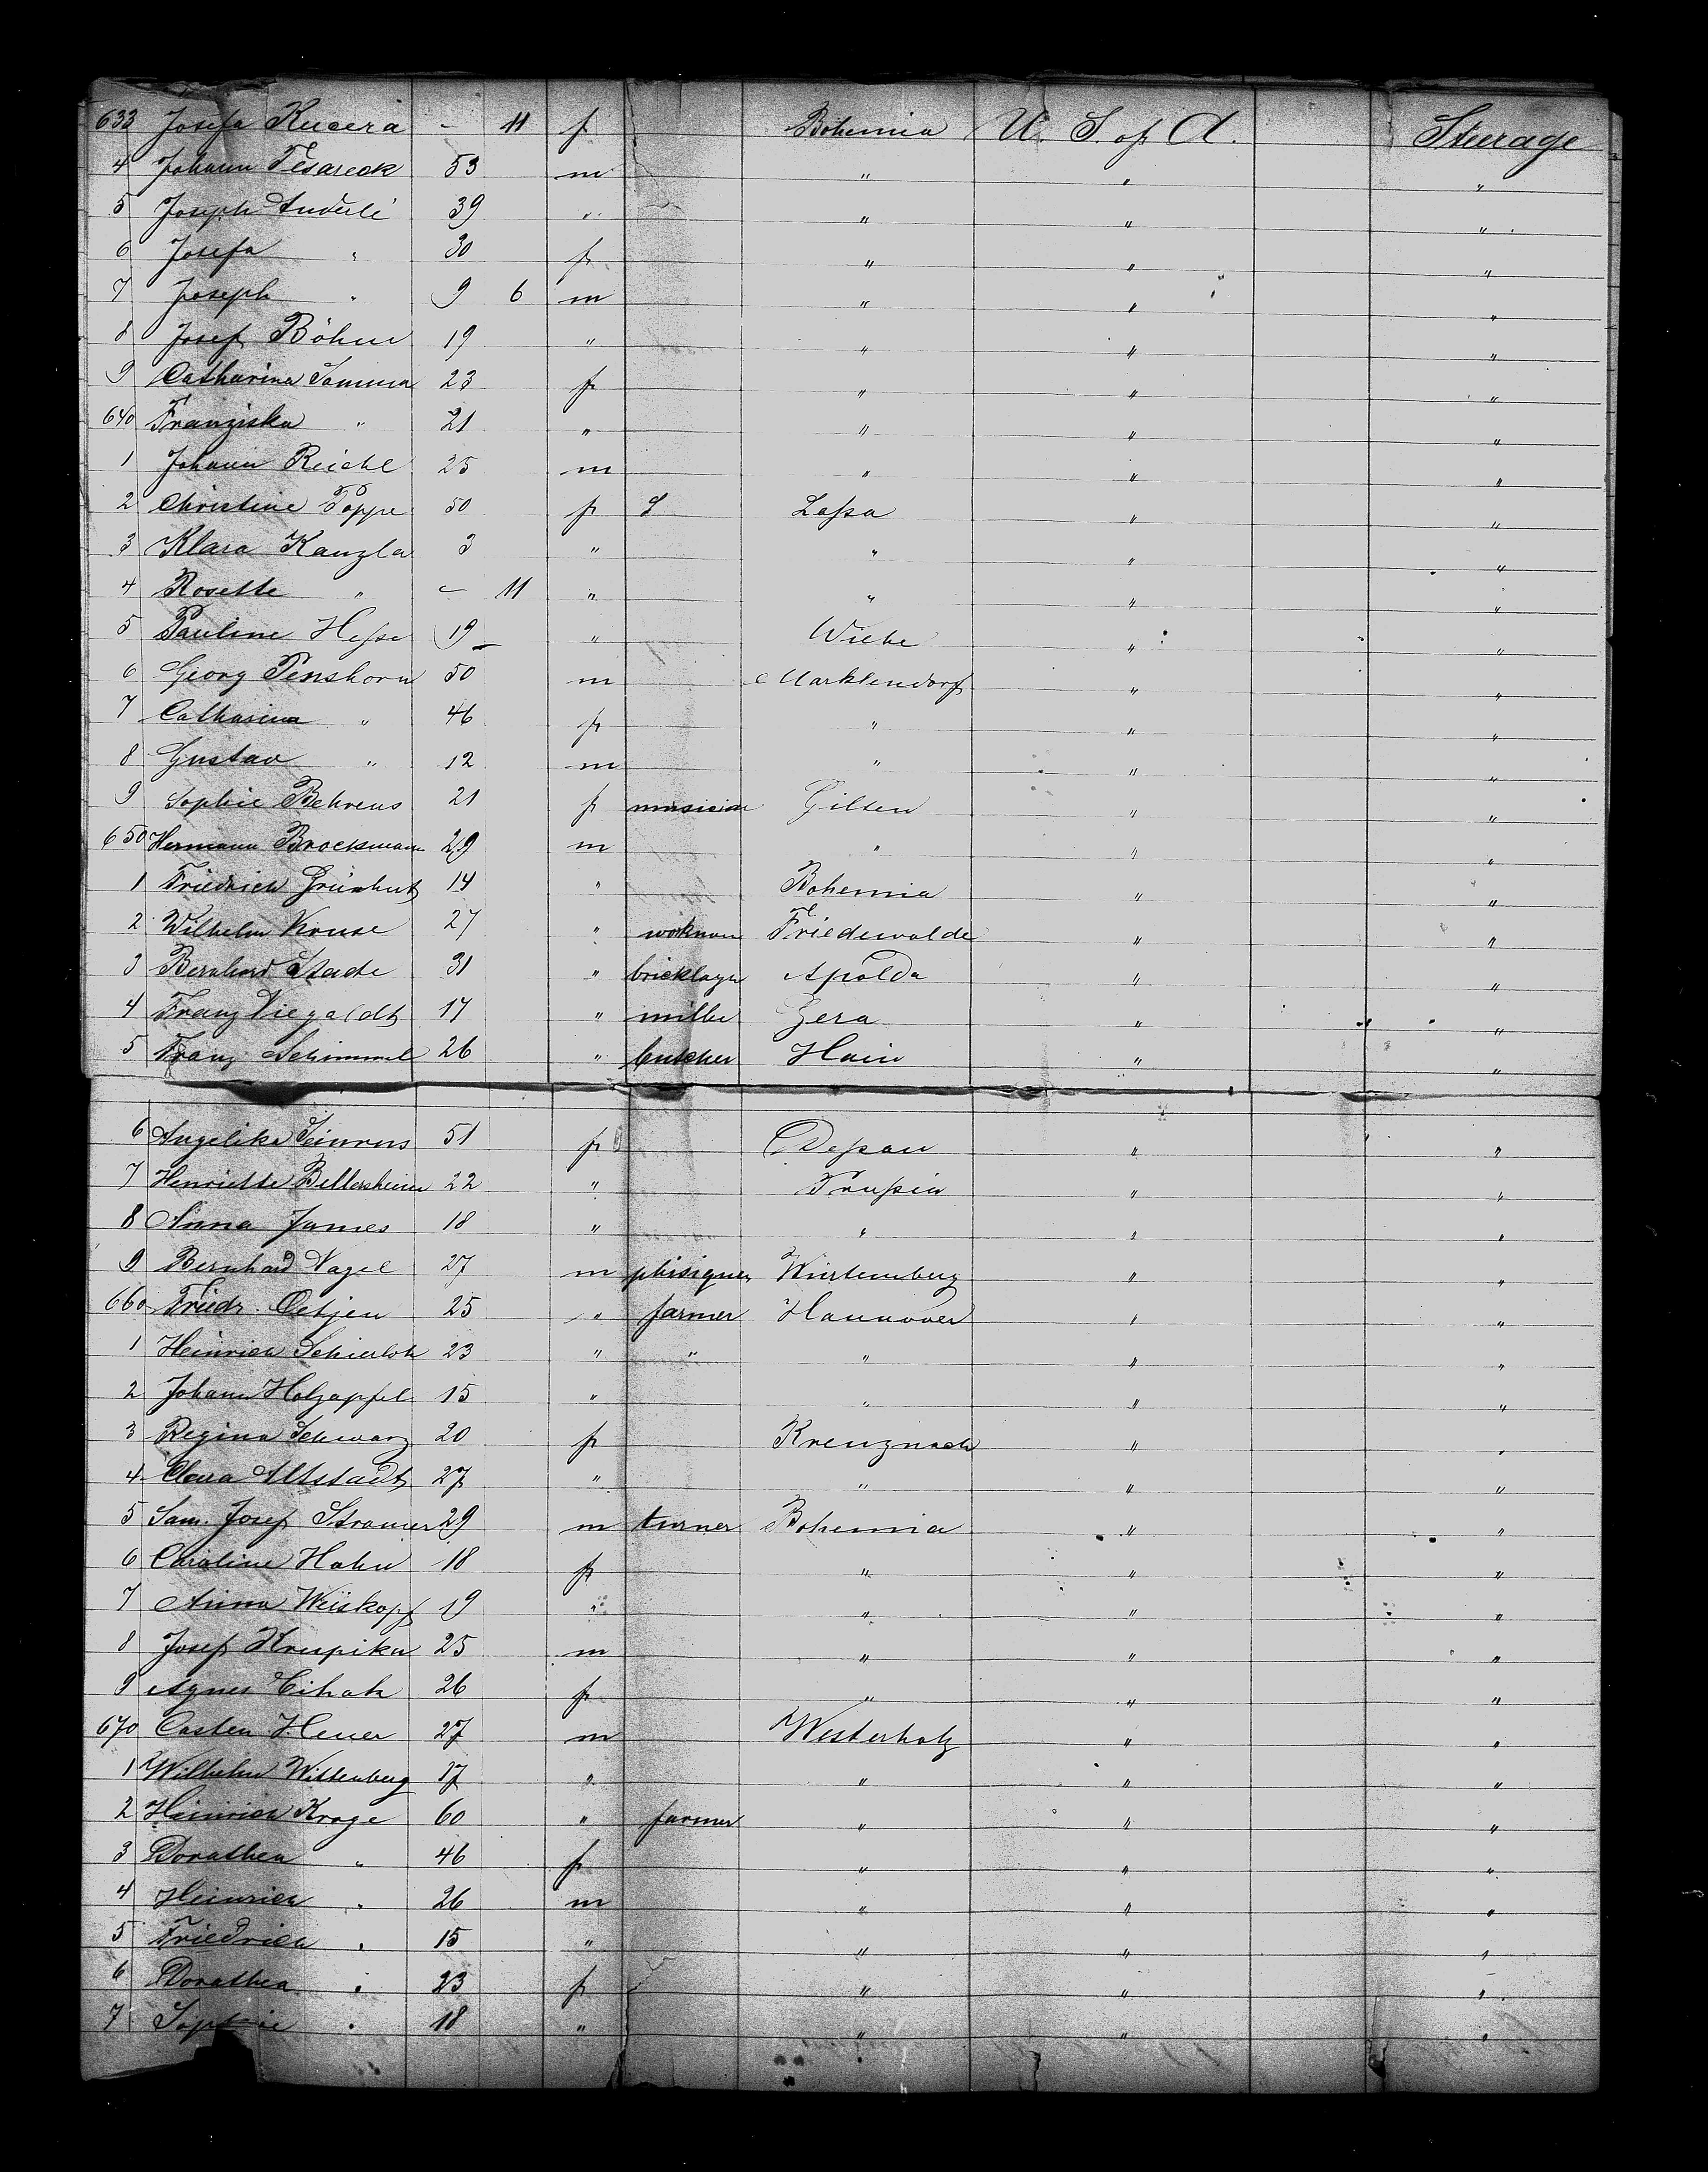 633 Josefa Kucera - 11 f Bohemia U. S. of A. Steerage
4 Johann Tesareck 53 m " " "
5 Joseph Anderlé 39 " " " "
6 Josefa " 30 f " " "
7 Joseph " 9 6 m " " "
8 Josef Böhm 19 " " " "
9 Catharina 23 f " " "
640 Franziska " 21 " " " "
1 Johann Reichl 25 m " " "
2 Christine Poppe 50 f Laßa " "
3 Klara Kanzla 3 " " " "
4 Rosette " - 11 " " " "
5 Pauline Heße 19 " Wiehe " "
6 Georg Penshorn 50 m Marklendorf " "
7 Catharina " 46 f " " "
8 Gustav " 12 m " " "
9 Sophie Behrens 21 f musician Gilten " "
650 Hermann Brockmann 29 m " " "
1 Friedrich Grünhut 14 " Bohemia " "
2 Wilhelm Kruse 27 " Friedewalde " "
3 Bernhard Stade 31 " bricklayer Apolda " "
4 Franz 17 " Gera " "
5 Franz Schimmel 26 " butcher Hain " "
6 Angelika 51 f Deßau " "
7 Henriette Bellersheim 22 " Prußia " "
8 Anna James 18 " " " "
9 Bernhard Nagel 27 m Würtemberg " "
660 Friedr. Oetjen 25 " farmer Hannover " "
1 Heinrich Schierloh 23 " " " " "
2 Johann Holzapfel 15 " " " "
3 Regina Schwarz 20 f Kreuznach " "
4 Clara Altstadt 27 " " " "
5 Sam. Josef Stramer 29 m turner Bohemia " "
6 Caroline Hahn 18 f " " "
7 Anna Weiskopf 19 " " " "
8 Josef Krupika 25 m " " "
9 Agnes Cihak 26 f " " "
670 Casten Heuer 27 m Westerholz " "
1 Wilhelm Wittenberg 17 " " " "
2 Heinrich Kroge 60 " farmer " " "
3 Dorathea " 46 f " " "
4 Heinrich " 26 m " " "
5 Friedrich " 15 " " " "
6 Dorathea " 23 f " " "
7 Sophie " 18 " " " "